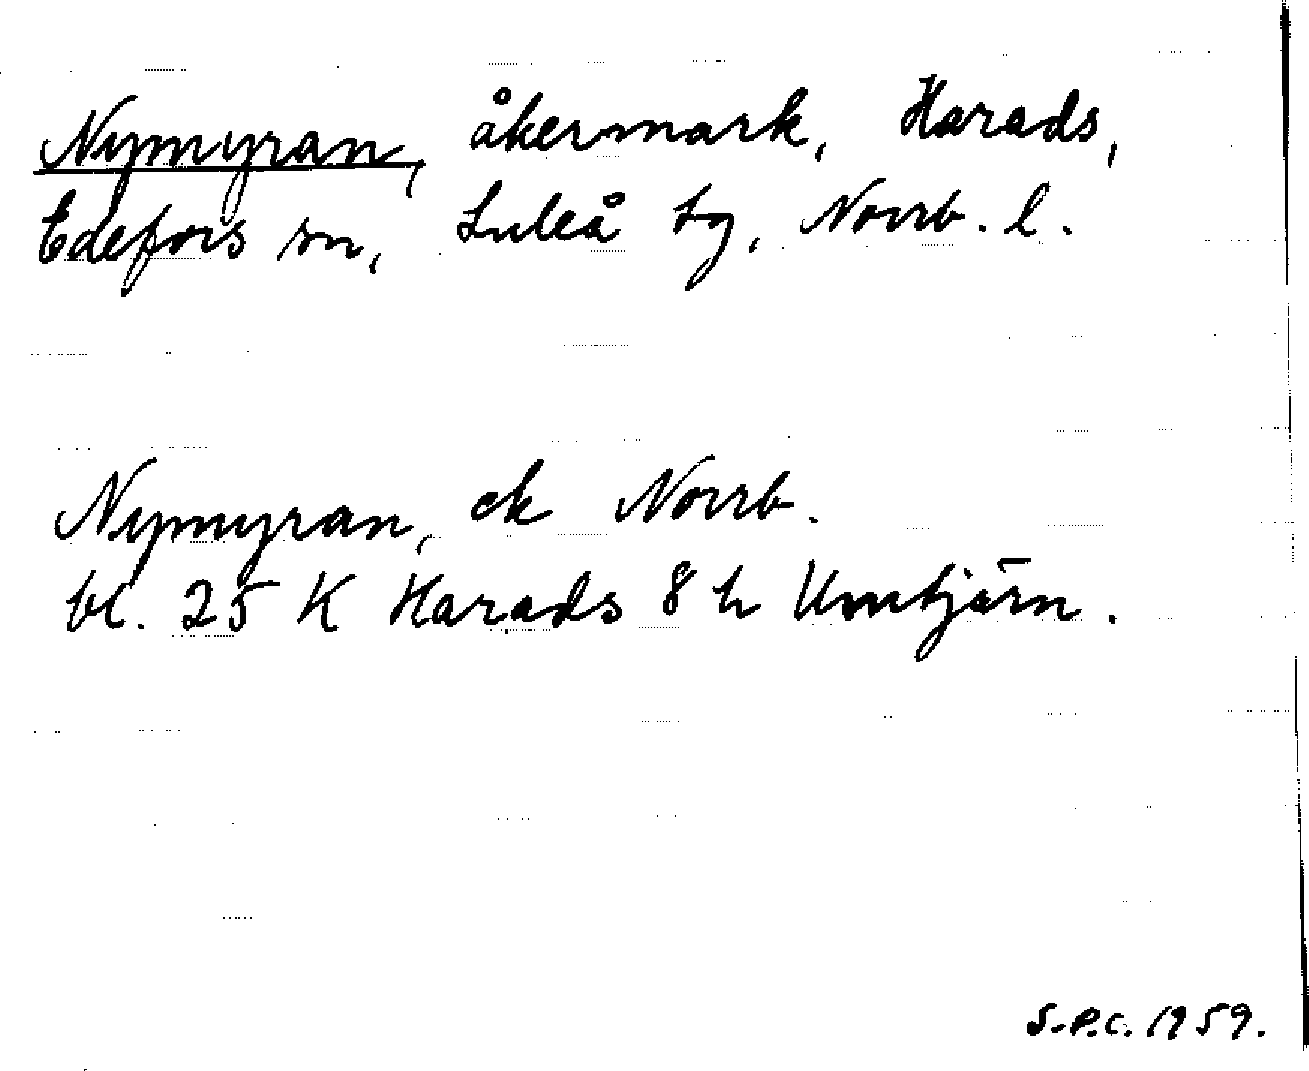 Nymyran, åkermark, Harads,
Edefors sn, Luleå tg, Norrb. l.
Nymyran, ek Norrb.
bl. 25 K Harads 8 h Umtjärn.
S.P.C. 1959.